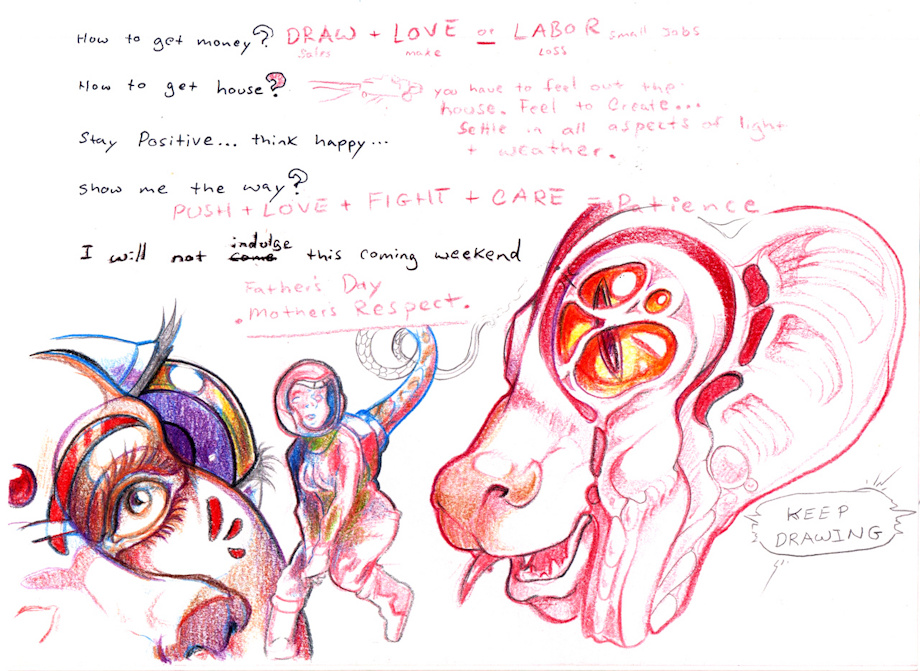 How to get money? DRAW + LOVE or LABOR small Jobs
Sales make Loss
How to get house? you have to feel out the
house. Feel to Create...
Settle in all aspects of light
+ weather.
Stay Positive... think happy...
Show me the way?
PUSH + LOVE + FIGHT + CARE = Patience
indulge
I will not come this coming weekend
Father's Day
. Mother's Respect.
KEEP
DRAWING